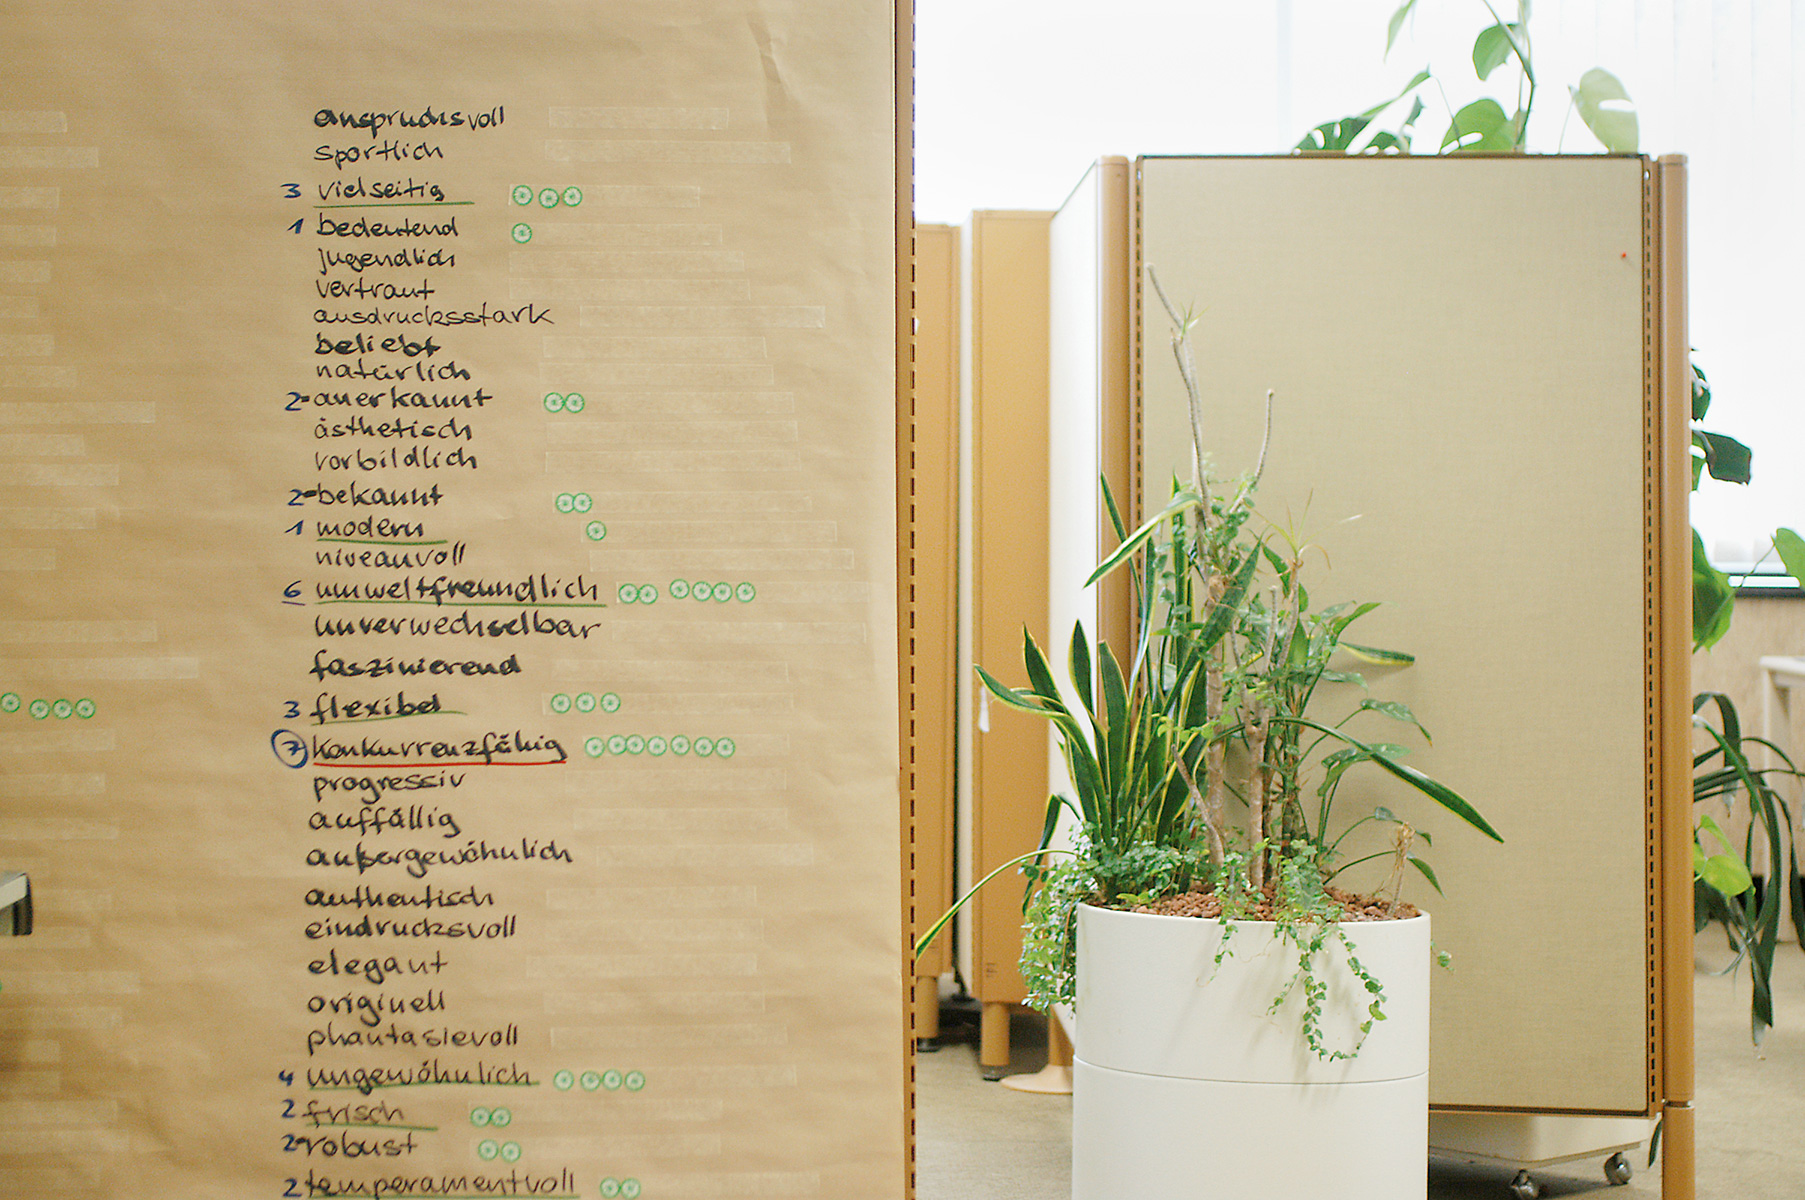 anspruchsvoll
sportlich
3 vielseitig
1 bedeutend
jugendlich
vertraut
ausdrucksstark
beliebt
natürlich
2 anerkannt
ästhetisch
vorbildlich
2 bekannt
1 modern
niveauvoll
6 umweltfreundlich
unverwechselbar
faszinierend
3 flexibel
7 konkurrenzfähig
progressiv
auffällig
außergewöhnlich
authentisch
eindrucksvoll
elegant
originell
phantasievoll
4 ungewöhnlich
2 frisch
2 robust
2 temperamentvoll